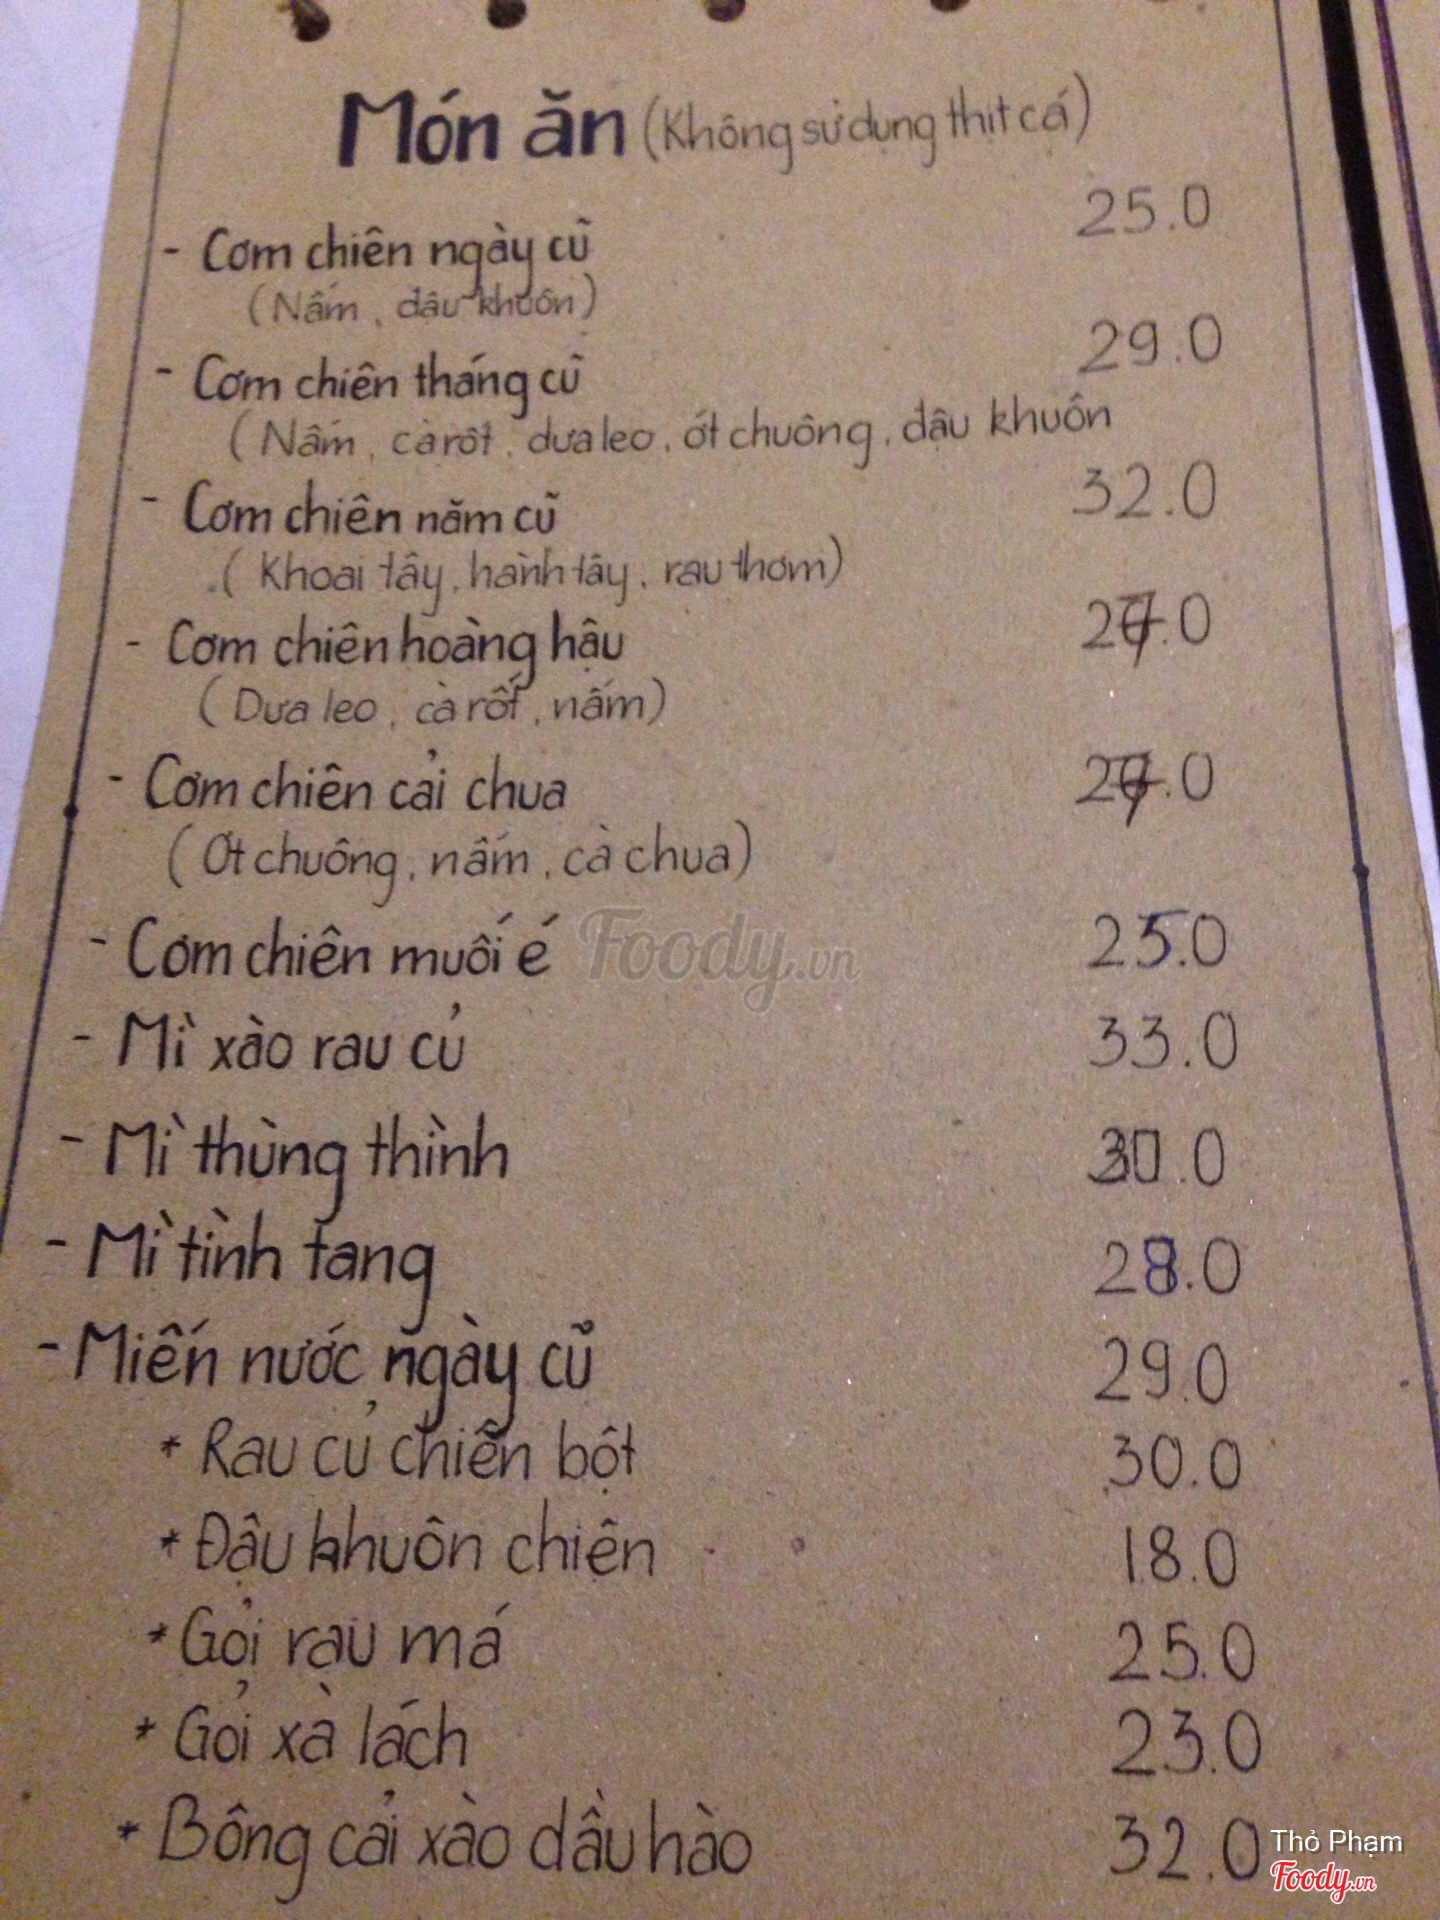 Món ăn (Không sử dụng thịt cá)
- Cơm chiên ngày cũ 25.0
(Nấm, đậu khuôn)
- Cơm chiên tháng cũ 29.0
(Nấm, cà rốt, dưa leo, ớt chuông, đậu khuôn
- Cơm chiên năm cũ 32.0
(Khoai tây, hành tây, rau thơm)
- Cơm chiên hoàng hậu 27.0
(Dưa leo, cà rốt, nấm)
- Cơm chiên cải chua 27.0
(Ớt chuông, nấm, cà chua)
- Cơm chiên muối é 25.0
Foody.vn
- Mì xào rau củ 33.0
- Mì thùng thình 30.0
- Mì tình tang 28.0
- Miến nước ngày cũ 29.0
* Rau củ chiên bột 30.0
* Đậu khuôn chiên 18.0
* Gỏi rau má 25.0
* Gỏi xà lách 23.0
* Bông cải xào dầu hào 32.0
Thỏ Phạm
Foody.vn